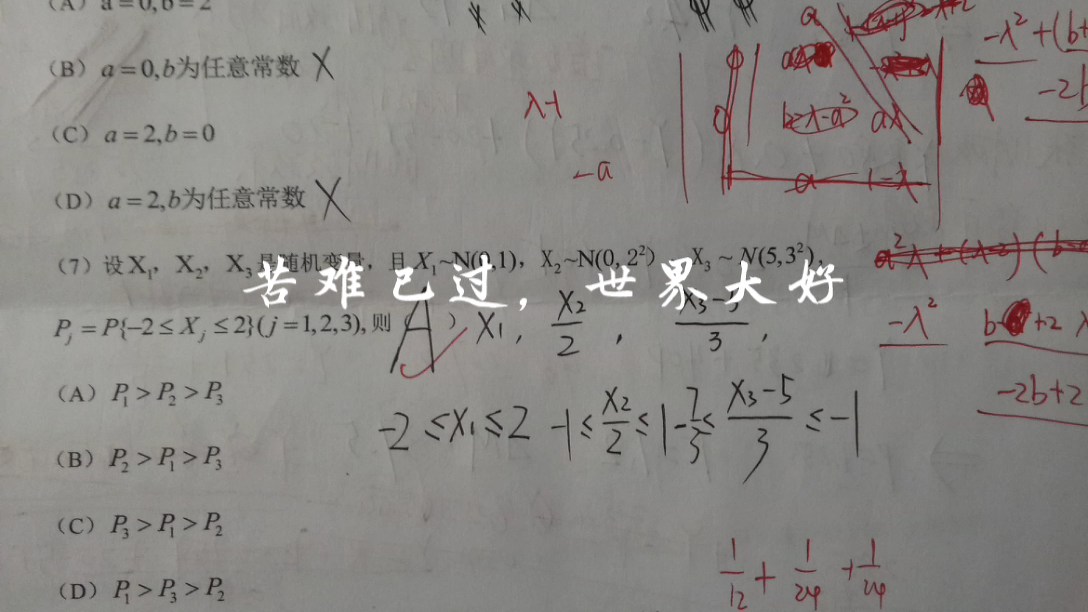 (A) a=0,b=2
(B) a=0,b为任意常数 X
(C) a=2,b=0
(D) a=2,b为任意常数 X
(7) 设X₁, X₂, X₃是随机变量, 且 X₁~N(0,1), X₂~N(0, 2²), X₃~N(5,3²),
苦难已过，世界大好
Pⱼ=P{-2≤Xⱼ≤2}(j=1,2,3),则 ( A ) X₁, X₂/2, X₃-5/3,
(A) P₁>P₂>P₃
-2≤X₁≤2 -1≤X₂/2≤1 -7/3≤X₃-5/3≤-1
(B) P₂>P₁>P₃
(C) P₃>P₁>P₂
(D) P₁>P₃>P₂
1/12+1/24+1/24
λ-1
-a
-λ²+(b+
-2b
-λ²
+2λ
-2b+2